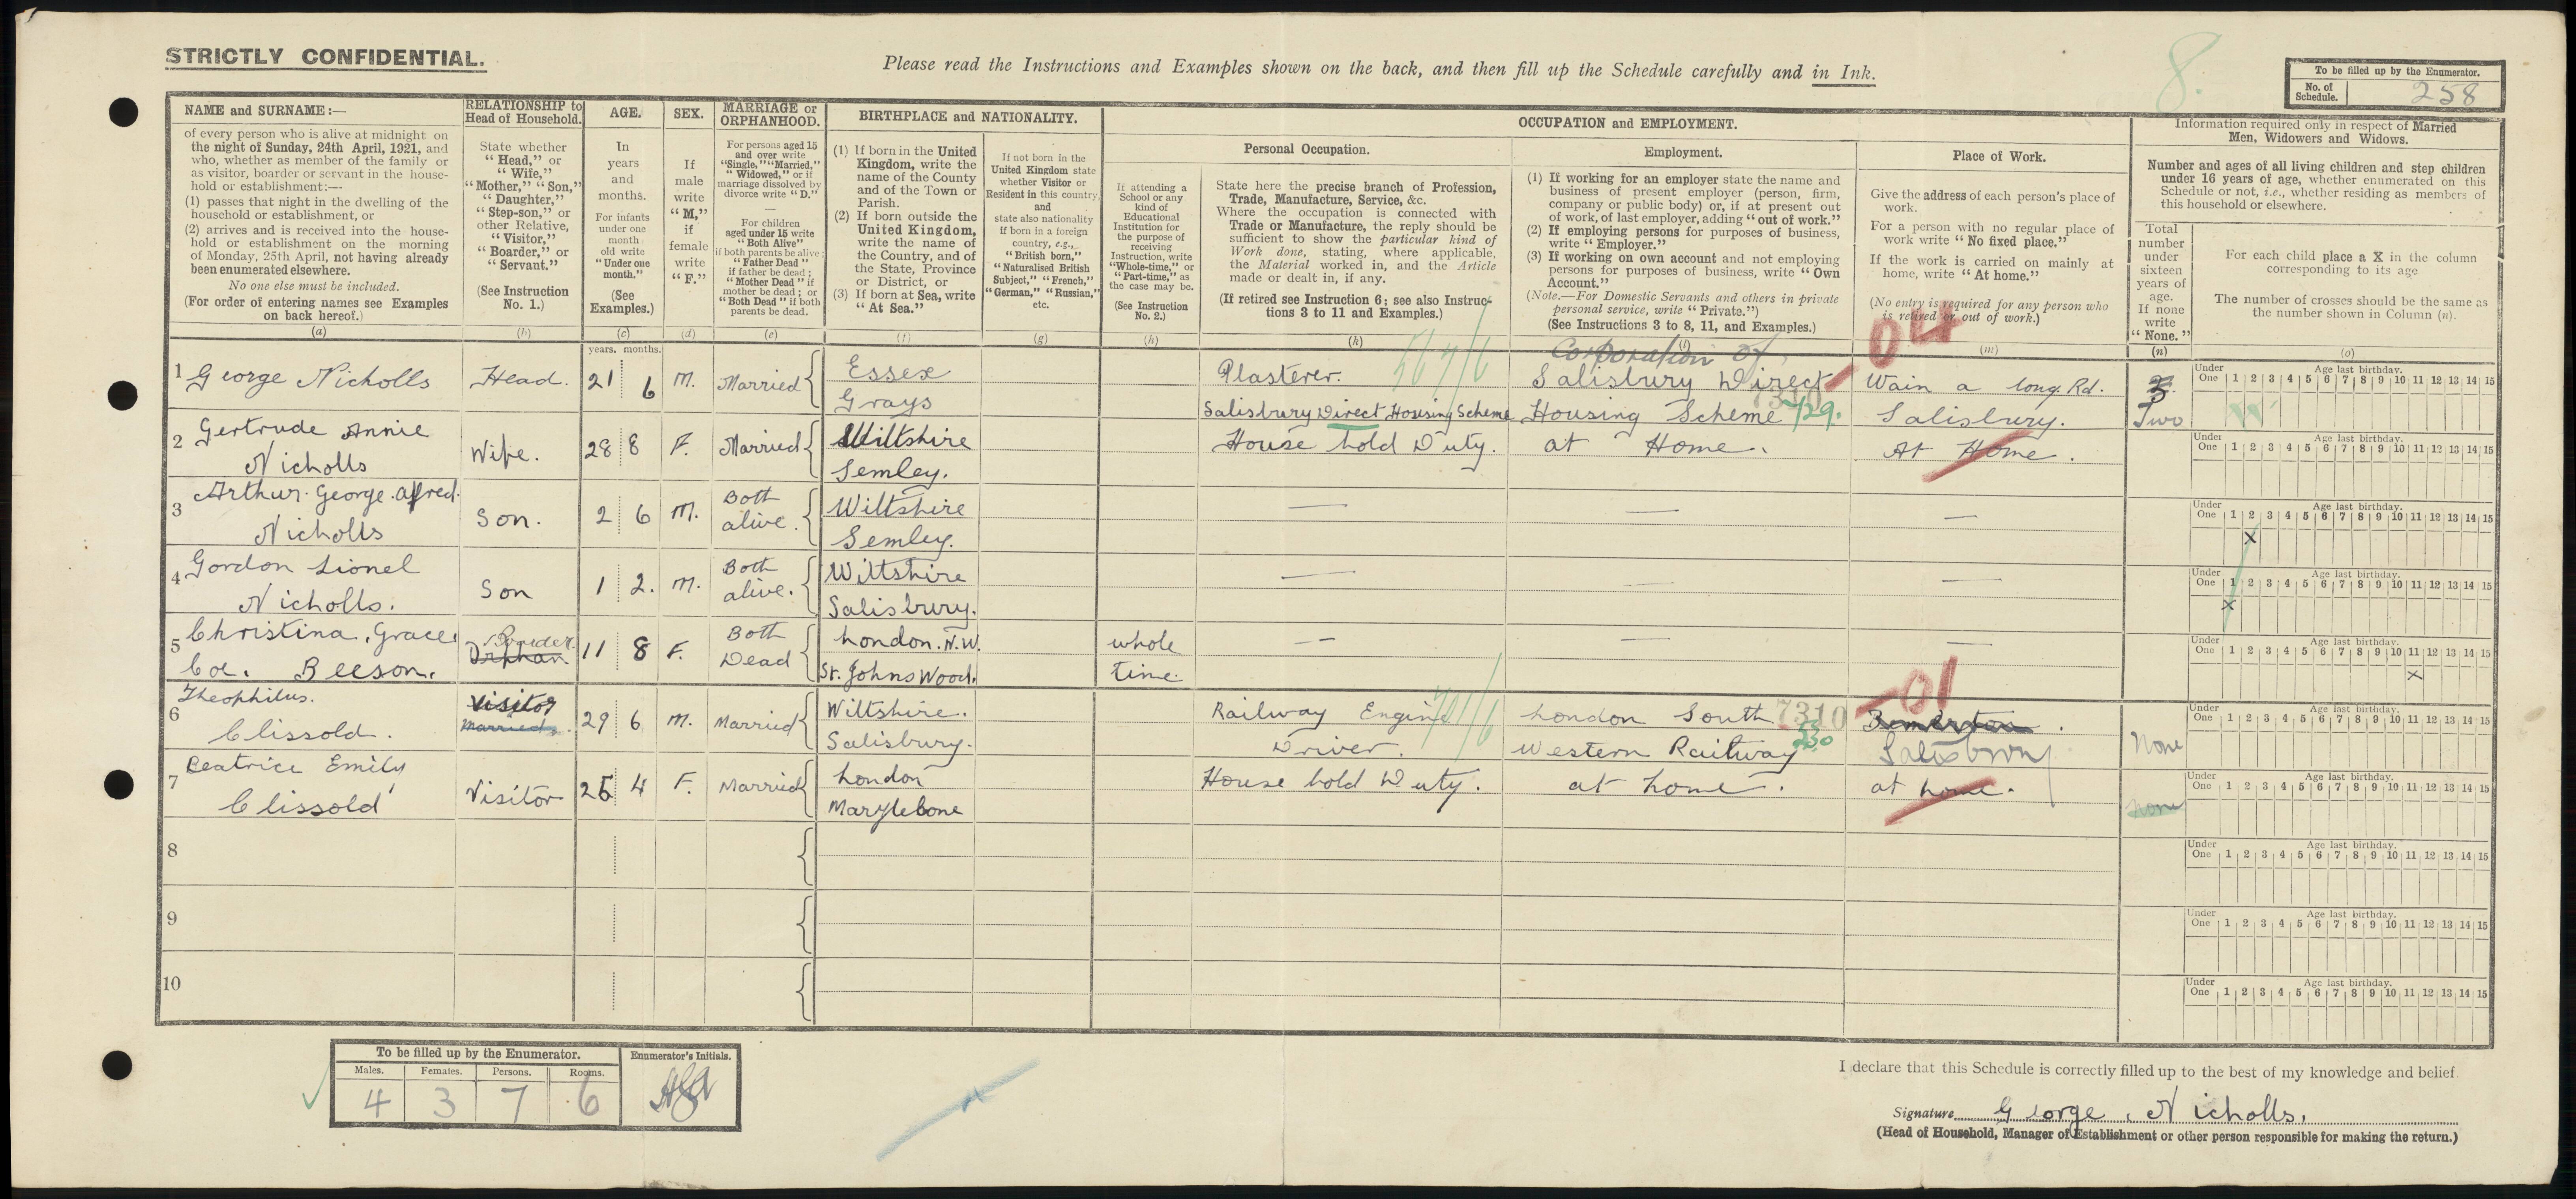 STRICTLY CONFIDENTIAL.
Please read the Instructions and Examples shown on the back, and then fill up the Schedule carefully and in Ink.
8.
To be filled up by the Enumerator.
No. of Schedule. 258
NAME and SURNAME:—
of every person who is alive at midnight on
the night of Sunday, 24th April, 1921, and
who, whether as member of the family or
as visitor, boarder or servant in the house-
hold or establishment:—
(1) passes that night in the dwelling of the
household or establishment, or
(2) arrives and is received into the house-
hold or establishment on the morning
of Monday, 25th April, not having already
been enumerated elsewhere.
No one else must be included.
(For order of entering names see Examples
on back hereof.)
(a)
RELATIONSHIP to
Head of Household.
State whether
"Head," or
"Wife,"
"Mother," "Son,"
"Daughter,"
"Step-son," or
other Relative,
"Visitor,"
"Boarder," or
"Servant."
(See Instruction
No. 1.)
(b)
AGE.
In
years
and
months.
For infants
under one
month
old write
"Under one
month."
(See
Examples.)
(c)
years. months.
SEX.
If
male
write
"M,"
if
female
write
"F."
(d)
MARRIAGE or
ORPHANHOOD.
For persons aged 15
and over write
"Single," "Married,"
"Widowed," or if
marriage dissolved by
divorce write "D."
—
For children
aged under 15 write
"Both Alive"
if both parents be alive;
"Father Dead"
if father be dead;
"Mother Dead" if
mother be dead; or
"Both Dead" if both
parents be dead.
(e)
BIRTHPLACE and NATIONALITY.
(1) If born in the United
Kingdom, write the
name of the County
and of the Town or
Parish.
(2) If born outside the
United Kingdom,
write the name of
the Country, and of
the State, Province
or District, or
(3) If born at Sea, write
"At Sea."
(f)
If not born in the
United Kingdom state
whether Visitor or
Resident in this country,
and
state also nationality
if born in a foreign
country, e.g.,
"British born,"
"Naturalised British
Subject," "French,"
"German," "Russian,"
etc.
(g)
OCCUPATION and EMPLOYMENT.
If attending a
School or any
kind of
Educational
Institution for
the purpose of
receiving
Instruction, write
"Whole-time," or
"Part-time," as
the case may be.
(See Instruction
No. 2.)
(h)
Personal Occupation.
State here the precise branch of Profession,
Trade, Manufacture, Service, &c.
Where the occupation is connected with
Trade or Manufacture, the reply should be
sufficient to show the particular kind of
Work done, stating, where applicable,
the Material worked in, and the Article
made or dealt in, if any.
(If retired see Instruction 6; see also Instruc-
tions 3 to 11 and Examples.)
(k)
Employment.
(1) If working for an employer state the name and
business of present employer (person, firm,
company or public body) or, if at present out
of work, of last employer, adding "out of work."
(2) If employing persons for purposes of business,
write "Employer."
(3) If working on own account and not employing
persons for purposes of business, write "Own
Account."
(Note.—For Domestic Servants and others in private
personal service, write "Private.")
(See Instructions 3 to 8, 11, and Examples.)
(l)
Place of Work.
Give the address of each person's place of
work.
For a person with no regular place of
work write "No fixed place."
If the work is carried on mainly at
home, write "At home."
(No entry is required for any person who
is retired or out of work.)
(m)
Information required only in respect of Married
Men, Widowers and Widows.
Number and ages of all living children and step children
under 16 years of age, whether enumerated on this
Schedule or not, i.e., whether residing as members of
this household or elsewhere.
Total
number
under
sixteen
years of
age.
If none
write
"None."
(n)
For each child place a X in the column
corresponding to its age
The number of crosses should be the same as
the number shown in Column (n).
(o)
Under One Age last birthday. 1 2 3 4 5 6 7 8 9 10 11 12 13 14 15
1 George Nicholls Head. 21 6 M. Married Essex Grays
Plasterer. 567/6
Salisbury Direct Housing Scheme
Corporation of
Salisbury Direct
Housing Scheme 7310 729.
-04
Wain a long Rd.
Salisbury.
3 Two
2 Gertrude Annie Nicholls Wife. 28 8 F. Married Wiltshire Semley.
House hold Duty. at Home. At Home.
Under One Age last birthday. 1 2 3 4 5 6 7 8 9 10 11 12 13 14 15
3 Arthur George Alfred. Nicholls Son. 2 6 M. Both alive. Wiltshire Semley. — — —
Under One Age last birthday. 1 2 3 4 5 6 7 8 9 10 11 12 13 14 15
x
4 Gordon Lionel Nicholls. Son 1 2. M. Both alive. Wiltshire Salisbury. — — —
Under One Age last birthday. 1 2 3 4 5 6 7 8 9 10 11 12 13 14 15
x
5 Christina Grace Coe. Beeson. Boarder. Orphan. 11 8 F. Both Dead London. N.W. St. Johns Wood. whole time. — — —
Under One Age last birthday. 1 2 3 4 5 6 7 8 9 10 11 12 13 14 15
x
6 Theophilus. Clissold. Visitor Married. 29 6 M. Married Wiltshire. Salisbury.
Railway Engine Driver. 701/6
London South Western Railway 7310
-01
Bemerton.
Salisbury
None
Under One Age last birthday. 1 2 3 4 5 6 7 8 9 10 11 12 13 14 15
7 Beatrice Emily Clissold Visitor 25 4 F. Married London Marylebone
House hold Duty. at home. at home. None
Under One Age last birthday. 1 2 3 4 5 6 7 8 9 10 11 12 13 14 15
8
Under One Age last birthday. 1 2 3 4 5 6 7 8 9 10 11 12 13 14 15
9
Under One Age last birthday. 1 2 3 4 5 6 7 8 9 10 11 12 13 14 15
10
Under One Age last birthday. 1 2 3 4 5 6 7 8 9 10 11 12 13 14 15
To be filled up by the Enumerator.
Males. Females. Persons. Rooms.
4 3 7 6
Enumerator's Initials.
I declare that this Schedule is correctly filled up to the best of my knowledge and belief
Signature George Nicholls.
(Head of Household, Manager of Establishment or other person responsible for making the return.)